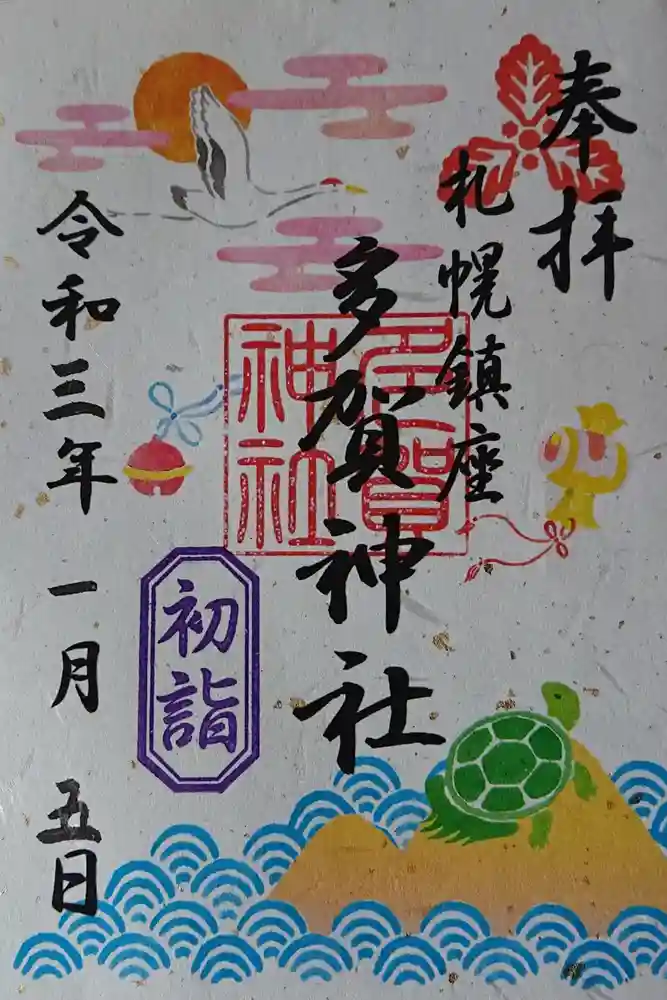 奉拝
札幌鎮座
多賀神社
多賀
神社
初詣
令和三年 一月 五日